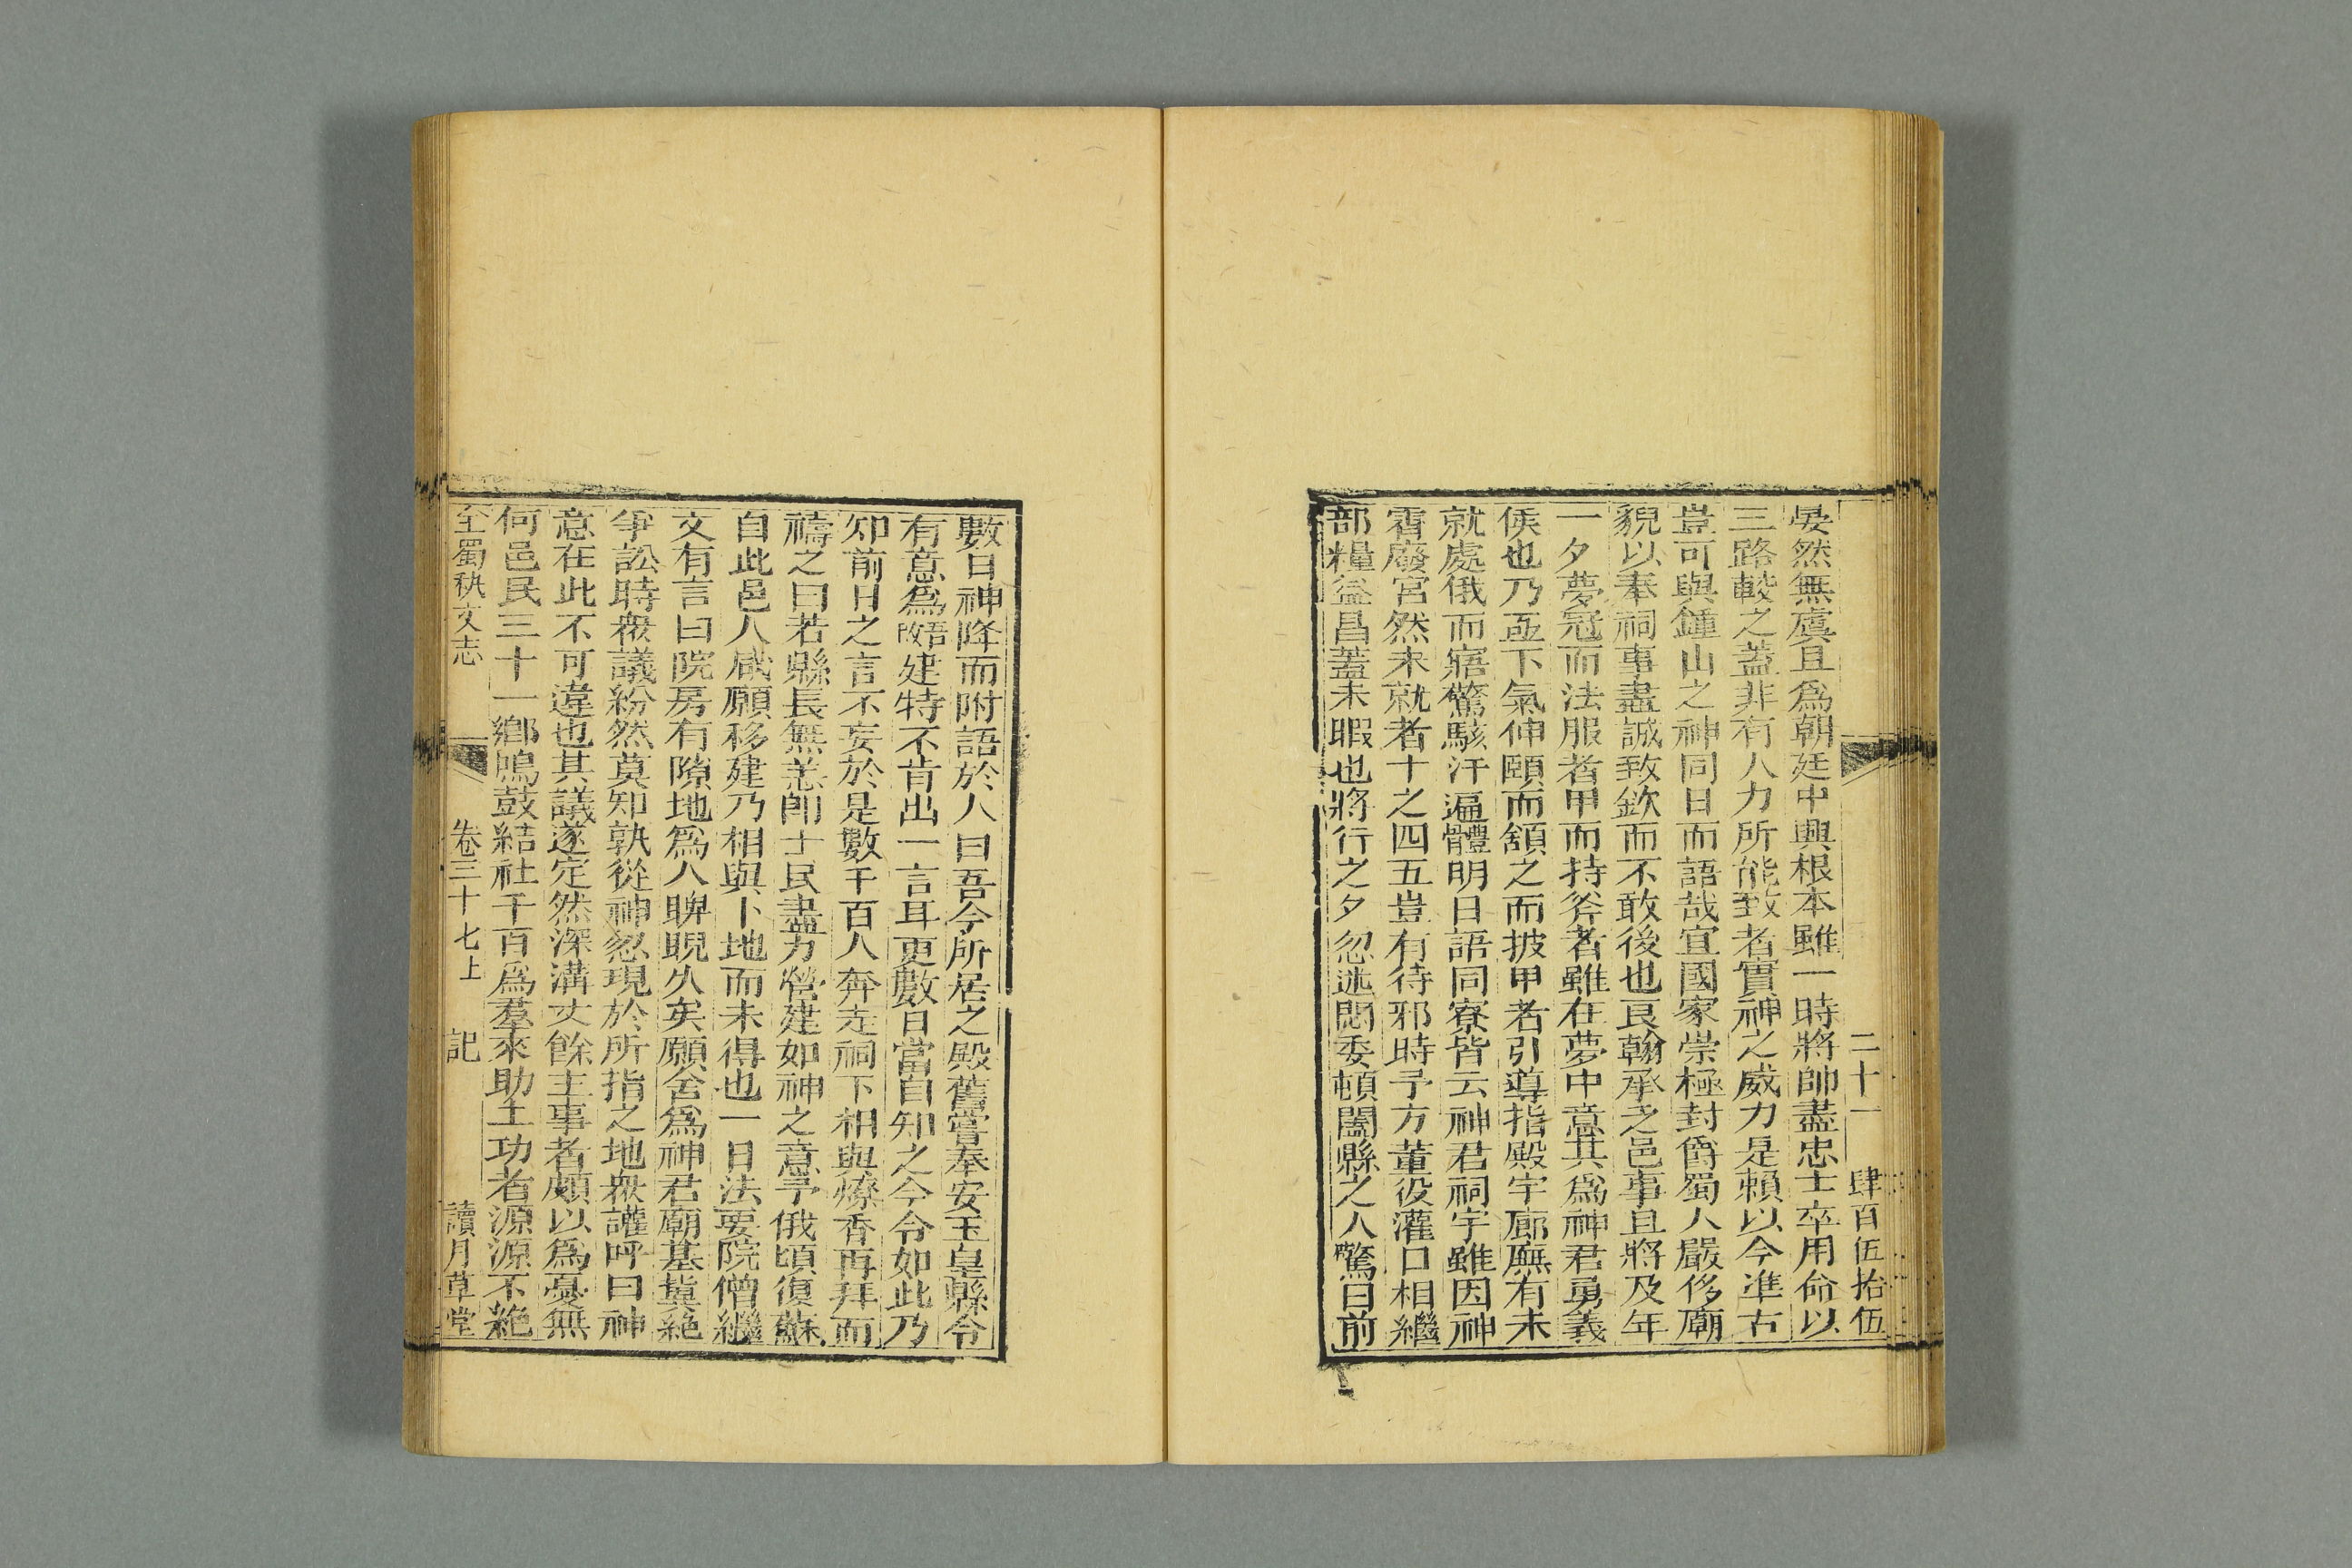 二十一 肆百伍拾伍
晏然無虞且爲朝廷中興根本雖一時將帥盡忠士卒用命以
三路轂之蓋非有人力所能致者實神之威力是賴以今準古
豈可與鍾山之神同日而語哉宜國家崇極封爵蜀人嚴侈廟
貌以奉祠事盡誠致欽而不敢後也艮翰承乏邑事且將及年
一夕夢冠而法服者甲而持斧者雖在夢中意其爲神君勇義
侯也乃亟下氣伸頤而頟之而披甲者引導指殿宇廊廡有未
就處俄而寤驚駭汗逼體明日語同寮皆云神君祠宇雖因神
霄廢宮然未就者十之四五豈有待邪時予方董役灌口相繼
部糧益昌蓋未暇也將行之夕忽迷悶委頓闔縣之人驚曰前
數日神降而附語於人曰吾今所居之殿舊嘗奉安玉皇縣令
有意爲吾改建特不肯出一言耳更數日當自知之今令如此乃
知前日之言不妄於是數千百人奔走祠下相與燎香再拜而
禱之曰若縣長無恙卽士民盡力營建如神之意予俄頃復蘇
自此邑人咸願移建乃相與卜地而未得也一日法要院僧繼
文有言曰院房有隙地爲人睥睨久矣願舍爲神君廟基冀絕
爭訟時衆議紛然莫知孰從神忽現於所指之地衆讙呼曰神
意在此不可違也其議遂定然深溝丈餘主事者頗以爲憂無
何邑民三十一鄉鳴鼓結社千百爲羣來助土功者源源不絶
全蜀秇文志 卷三十七上 記 讀月草堂